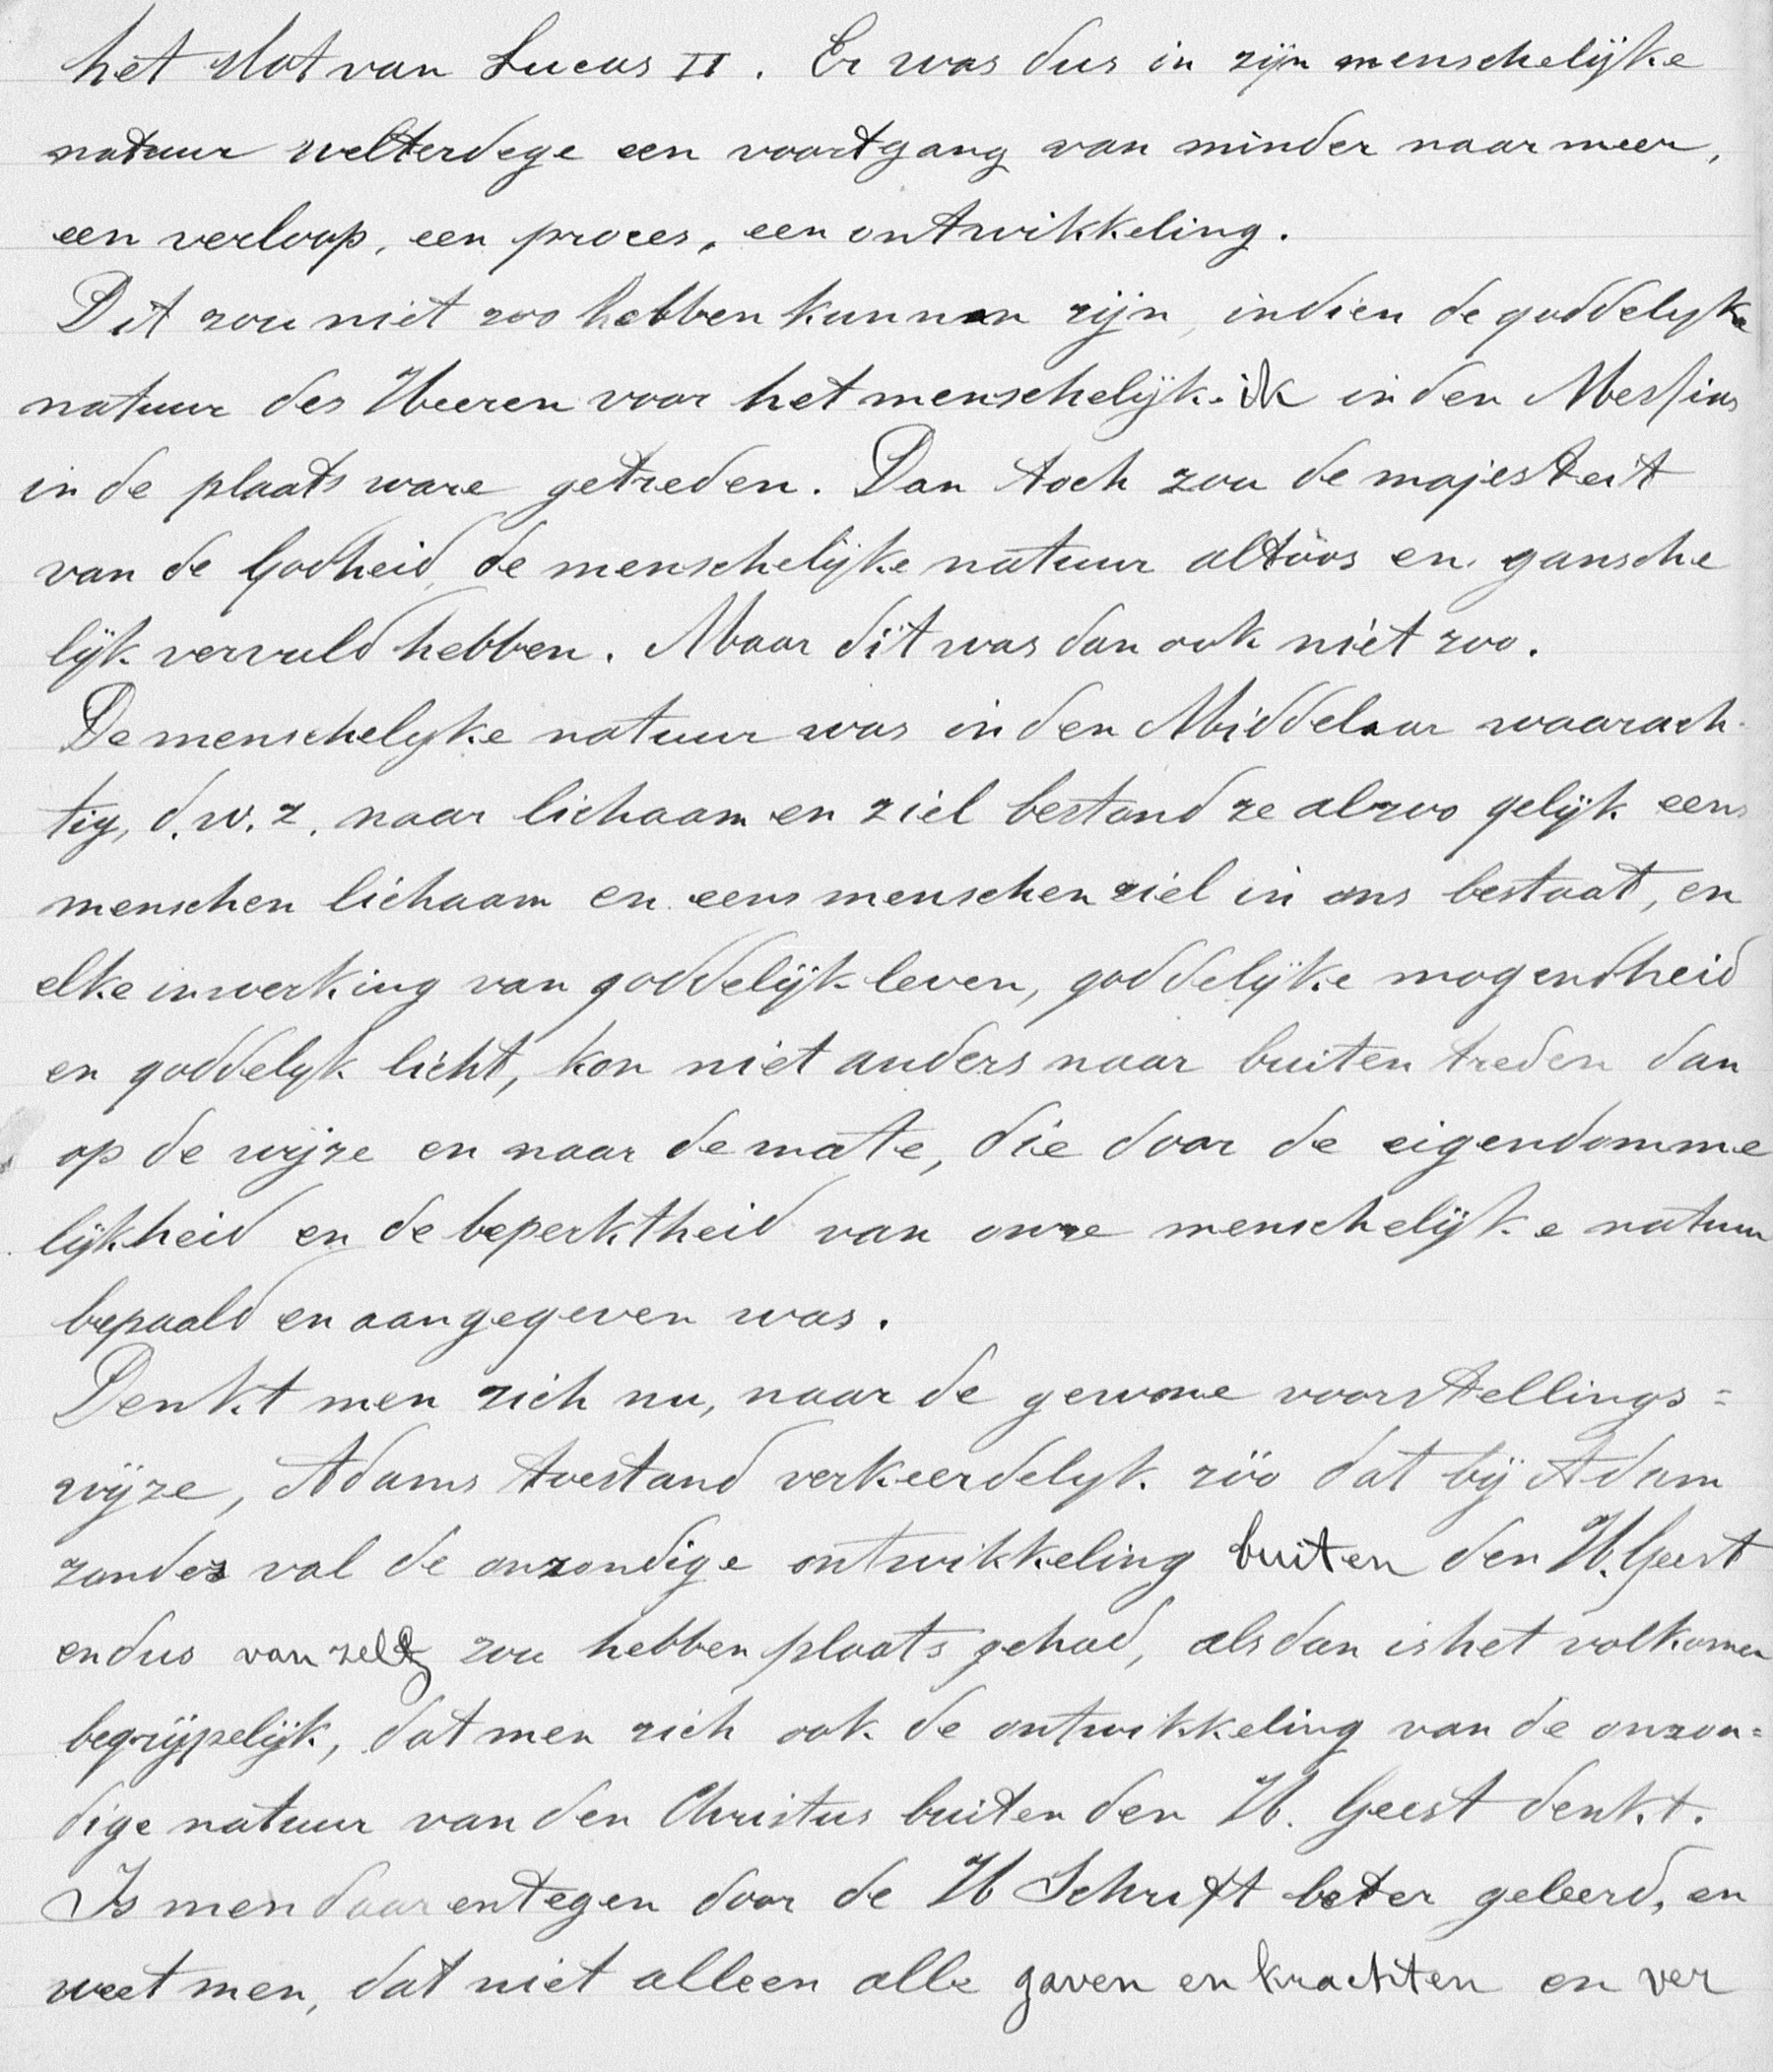 het slot van Lucas II. Er was dus in zijn menschelijke
natuur welterdege een voortgang van minder naar meer,
een verloop, een proces, een ontwikkeling.
Dit zou niet zoo hebben kunnen zijn, indien de goddelyke
natuur des Heeren voor het menschelijk-ik in den Messias
in de plaats ware getreden. Dan toch zou de majesteit
van de Godheid de menschelijke natuur altoos en gansche
lijk vervuld hebben. Maar dit was dan ook niet zoo.
De menschelyke natuur was in den Middelaar waarach-
tig, d.w.z. naar lichaam en ziel bestond ze alzoo gelijk eens
menschen lichaam en eens menschen ziel in ons bestaat, en
elke inwerking van goddelijk leven, goddelijke mogendheid
en goddelyk licht, kon niet anders naar buiten treden dan
op de wijze en naar de mate, die door de eigendomme
lijkheid en de beperktheid van onze menschelijke natuur
bepaald en aangegeven was.
Denkt men zich nu, naar de gewone voorstellings=
wijze, Adams toestand verkeerdelyk zóó dat bij Adam
zonder val de onzondige ontwikkeling buiten den H. Geest
en dus vanzelf zou hebben plaats gehad, alsdan is het volkomen
begrijpelijk, dat men zich ook de ontwikkeling van de onzon=
dige natuur van den Christus buiten den H. Geest denkt.
Is men daarentegen door de H Schrift beter geleerd, en
weet men, dat niet alleen alle gaven en krachten en ver